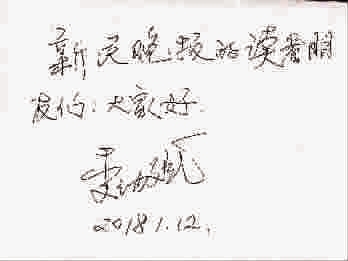 新民晚报的读者朋
友们：大家好．
2018.1.12.